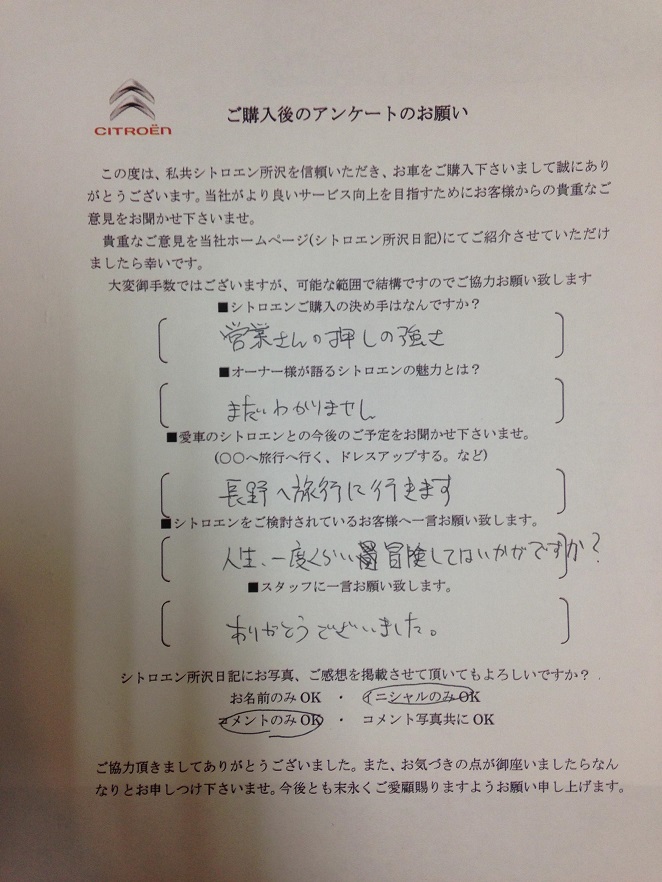 CITROËN
ご購入後のアンケートのお願い
この度は、私共シトロエン所沢を信頼いただき、お車をご購入下さいまして誠にあり
がとうございます。当社がより良いサービス向上を目指すためにお客様からの貴重なご
意見をお聞かせ下さいませ。
貴重なご意見を当社ホームページ(シトロエン所沢日記)にてご紹介させていただけ
ましたら幸いです。
大変御手数ではございますが、可能な範囲で結構ですのでご協力お願い致します
■シトロエンご購入の決め手はなんですか？
営業さんの押しの強さ
■オーナー様が語るシトロエンの魅力とは？
まだわかりません
■愛車のシトロエンとの今後のご予定をお聞かせ下さいませ。
(〇〇へ旅行へ行く、ドレスアップする。など)
長野へ旅行に行きます
■シトロエンをご検討されているお客様へ一言お願い致します。
人生、一度くらい冒険してはいかがですか？
■スタッフに一言お願い致します。
ありがとうございました。
シトロエン所沢日記にお写真、ご感想を掲載させて頂いてもよろしいですか？
お名前のみ OK ・ イニシャルのみ OK
コメントのみ OK ・ コメント写真共に OK
ご協力頂きましてありがとうございました。また、お気づきの点が御座いましたらなん
なりとお申しつけ下さいませ。今後とも末永くご愛顧賜りますようお願い申し上げます。